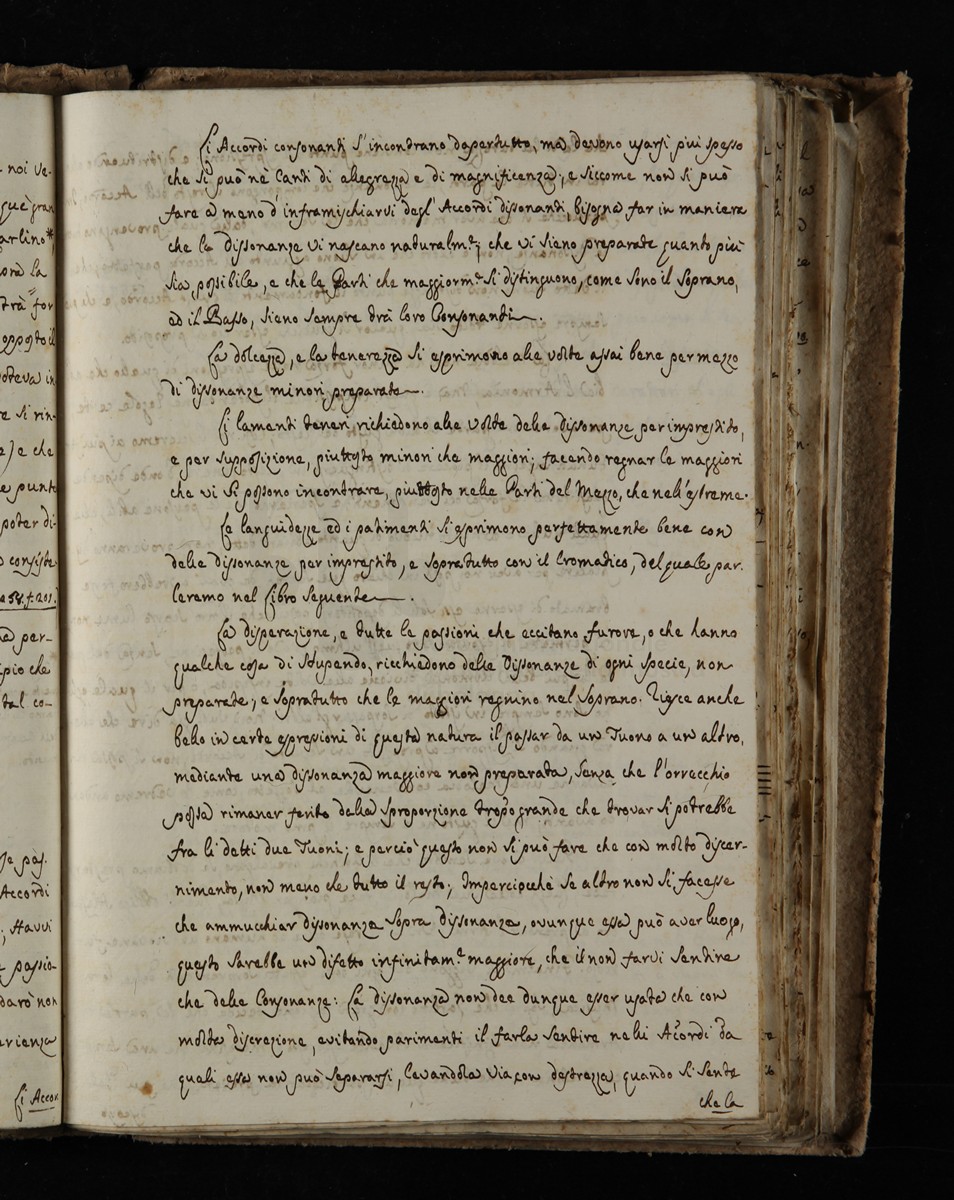 noi ve-
que gran
arlino*
ora la
trà for
opposto il
oteva in
e si rin-
e) e che
e punto
poter di-
consiste
a per-
pio che
tal co-
Accordi
; Havvi
passio-
darò non
rienza
Li Accor
Li Accordi consonanti s'incontrano dapertutto, ma devono usarsi più spesso
che si può nè Canti di allegrezza e di magnificenza; e siccome non si può
fare a meno d'inframischiarvi degl'Accordi dissonanti, bisogna far in maniera
che le dissonanze vi nascano naturalm.te; che vi sieno preparate quanto più
sia possibile, e che le Parti che maggiorm.te si distinguono, come sono il Soprano,
ed il Basso, sieno sempre trà loro Consonanti.
La dolcezza, e la tenerezza si esprimono alle volte assai bene per mezzo
di dissonanze minori preparate.
Li lamenti teneri richiedono alle volte delle dissonanze per imprestito,
e per supposizione, piuttosto minori che maggiori; facendo regnar le maggiori
che vi si possono incontrare, piuttosto nelle Parti del Mezzo, che nell'estreme.
Le languidezze ed i patimenti si esprimono perfettamente bene con
delle dissonanze per imprestito, e sopratutto con il Cromatico, del quale par-
leremo nel Libro seguente.
La disperazione, e tutte le passioni che eccitano furore, o che hanno
qualche cosa di stupendo, ricchiedono delle Dissonanze di ogni specie, non
preparate; e sopratutto che le maggiori regnino nel Soprano. Riesce anche
bello in certe espressioni di questa natura il passar da un Tuono a un altro,
mediante una dissonanza maggiore non preparata, senza che l'orrecchio
possa rimaner ferito dalla sproporzione troppo grande che trovar si potrebbe
fra li detti due Tuoni; e perciò questo non si può fare che con molto discer-
nimento, non meno che tutto il resto; Impercipchè se altro non si facesse
che ammucchiar dissonanza sopra dissonanza, ovunque essa può aver luogo,
questo sarebbe un difetto infinitam.te maggiore, che il non farvi sentire
che delle Consonanze: La dissonanza non dee dunque esser usata che con
molta discrezione, evitando parimenti il farla sentire nelli Accordi da
quali essa non può separarsi, levandola via con destrezza, quando si sente
che la